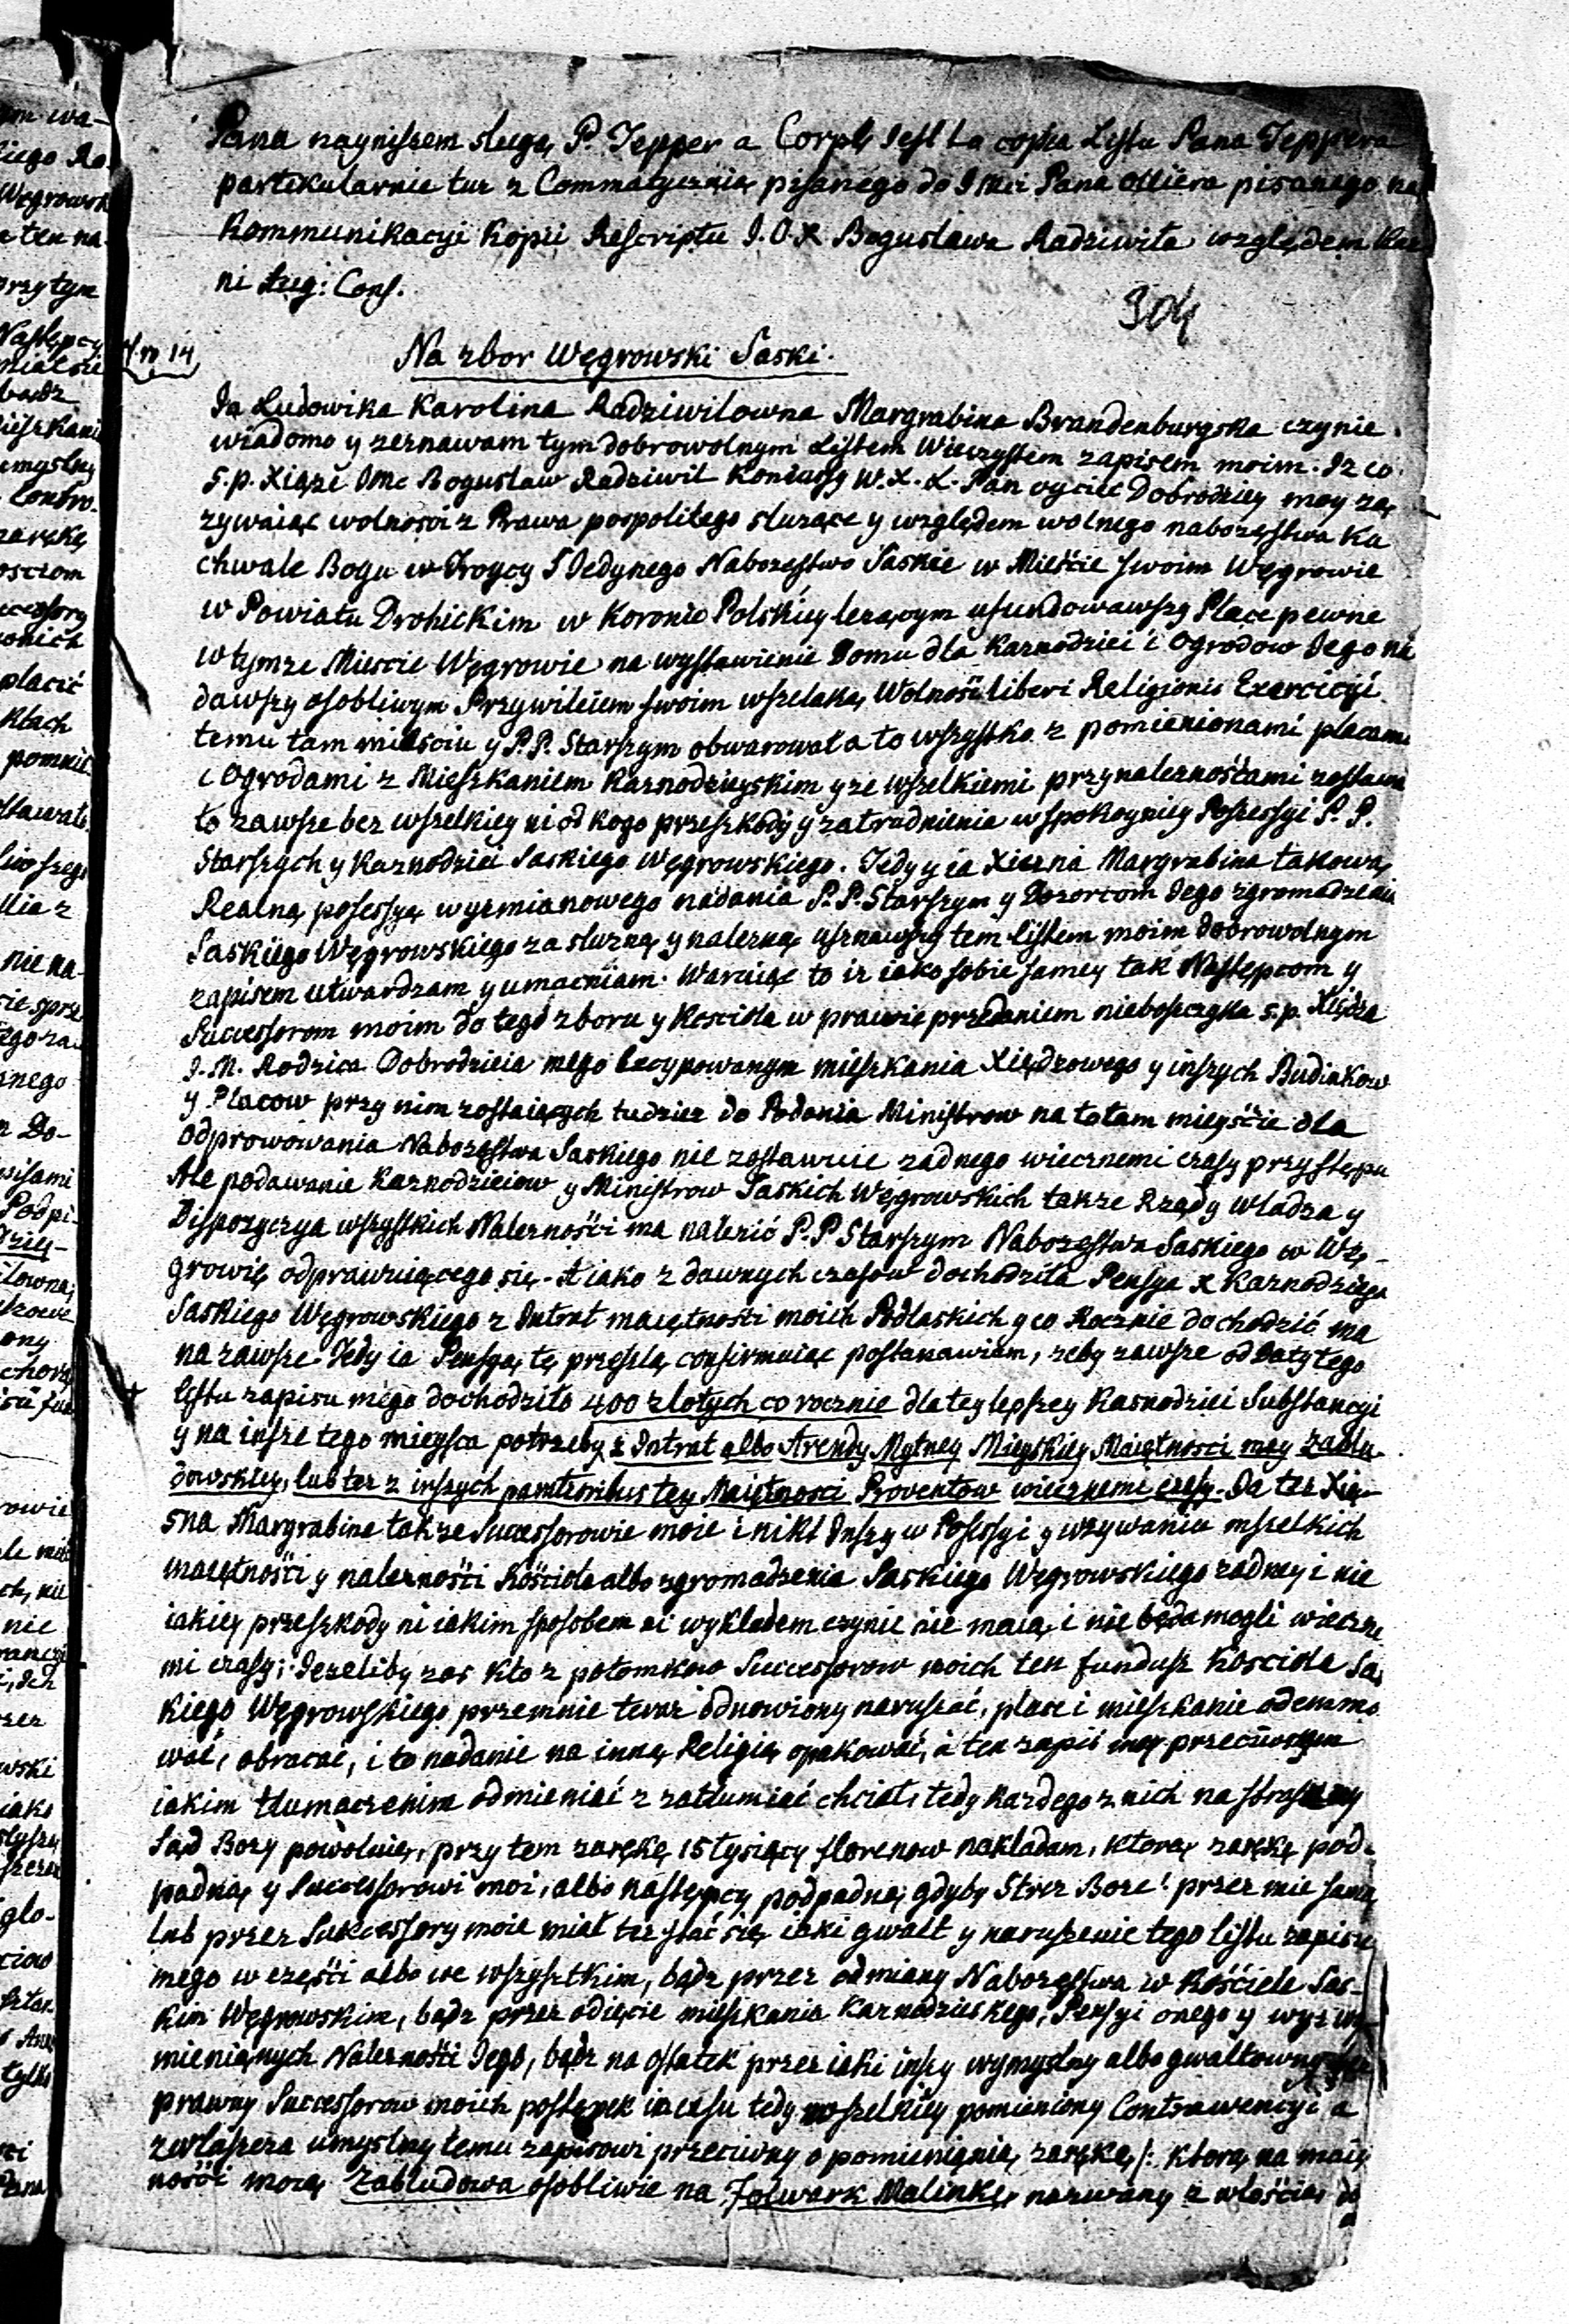 Pana nayniszem sługą P. Tepper a Corpſ, Jest ta copia Listu Pana Teppera
partikularnie tuz z Commatycznią pisanego do J Mci Pana Olliera pisanego na
Kommunikacyi Kopii Rescriptu J.O.X Bogusława Radziwiła względem Kaz
ni Aug: Conf.
304
N.ro 14
Na zbor Węgrowski Saski.
Ja Ludowika Karolina Radziwilowna Margrabina Brandenburgska czynie
wiadomo y zeznawam tym dobrowolnym Listem Wieczystem zapisem moim. Iz co
s.p. Xiąże Jmc Bogusław Radziwił Koniuszy W.X.L. Pan oyciec Dobrodziey moy za
zywaiąc wolnosci z Prawa pospolitego sluzące y względem wolnego nabozęstwa ku
chwale Bogu w Troycy S Jedynego Nabozęstwo Saskie w Mieście swoim Węgrowie
w Powiatu Drohickim w Koronie Polskiey lezącym ufundowawszy Place pewne
w tymze Miescie Węgrowie na wystawienie Domu dla Kaznodziei i Ogrodow Jego na
dawszy osobliwym Przywileiem swoim wszelaką Wolność liberi Religionis Exercicyi
temu tam mieściu y P.P. Starszym obwarował a to wszystko z pomienionami placami
i Ogrodami z Mieszkaniem Kaznodzieyskim y ze wszelkiemi przynaleznośćami zostawa
ło zawsze bez wszelkiey ni od kogo przeszkody y zatrudnienia w spokoyniey Possessyi P.P.
Starszych y Kaznodziei Saskiego Węgrowskiego. Tedy y ia Xiezna Margrabina takową
Realną posessyą wyzmianowego nadania P.P. Starszym y Dozorcom Jego zgromadzenia
Saskiego Węgrowskiego za słuzną y nalezną uznawszy tem listem moim dobrowolnym
zapisem utwardzam y umacniam. Waruiąc to iz iako sobie samey tak Następcom y
Successorom moim do tego zboru y Koscioła w prawie przedaniem nieboszczyka s.p. Xiędza
J.M. Rodzica Dobrodzieia mego lecypowanym mieszkania Xiędzowego y inszych Budinkow
y Placow przy nim zostaiących tudziez do Podania Ministrow na to tam mieyście dla
odprowowania Nabozęstwa Saskiego nie zostawuie zadnego wiecznemi czasy przystępu
Ale podawanie Kaznodzieiow y Ministrow Saskich Węgrowskich takze Rządy władza y
Dispozyczya wszystkich Nalezności ma nalezić P.P Starszym Nabozęstwa Saskiego w Wę-
growię odprawuiącego się. A iako z dawnych czasow dochodziła Pensya x Kaznodzieja
Saskiego Węgrowskiego z Intrat maiętnosti moich Podlaskich y co Rocznie dochodzić ma
na zawsze. Tedy ia Pensyą tę przeszłą confirmuiąc postanawiam, zeby zawsze od Daty tego
lystu zapisu mego dochodziło 400 zlotych co rocznie dla tey lepszey Kasnodziei Substancyi
y na insze tego mieysca potrzeby z Intrat albo Arendy Mytney Mieyskiey Maiętnosci mey Zabłu
dowskiey, lub tez z inszych pomtiornibus tey Maiętnosci Proventow wiecznemi czasy. Ja tez Xię-
zna Margrabina takze Sucessorowie moie i nikt Jnszy w Posessyi y uzywaniu wszelkich
maiętności y nalezności Kościoła albo zgromadzenia Saskiego Węgrowskiego zadney i nie
iakiey przeszkody ni iakim sposobem ni wykładem czynie nie maią i nie będą mogli wieczne
mi czasy; Jezeliby zas kto z potomkow Successorow moich ten fundusz Koscioła Sas
kiego Węgrowskiego przemnie teraz odnowiony naruszać, place i mieszkanie odeymo
wać, obracać, i to nadanie na inną Religią opakować, a ten zapis moy przeciwnym
iakim tłumaczenim odmieniać z zatłumiać chciał, tedy kazdego z nich na straszny
Sąd Bozy powołuię, przy tem zarękę 15 tysięcy florenow nakładam, ktorą zarękę pod-
padną y Successorowi moi, albo następcy podpadną, gdyby Strez Boze! przez mie samą
lub przez Sukcessory moie miał tez stać się iaki gwałt y naruszenie tego listu zapisu
mego w części albo we wszystkim, bądz przez odmiany Nabozęstwa w Kościele Sas-
kim Węgrowskim, bądz przez odięcie mieszkania Kaznodzieskego, Pensyi onego y wyzwy
mieniąnych Nalezności Jego, bądz na ostatek przez iaki inszy wymyslny albo gwałtowny
prawny Successorow moich postępek in casu tedy wszelkiey pomieniony Contrawencyi a
zwłaszcza umyslny temu zapisowi przeciwny o pomieniąnią zarękę /: ktorą na maię
ności moią Zabludowa osobliwie na Folwark Malinkę nazwany z włością do